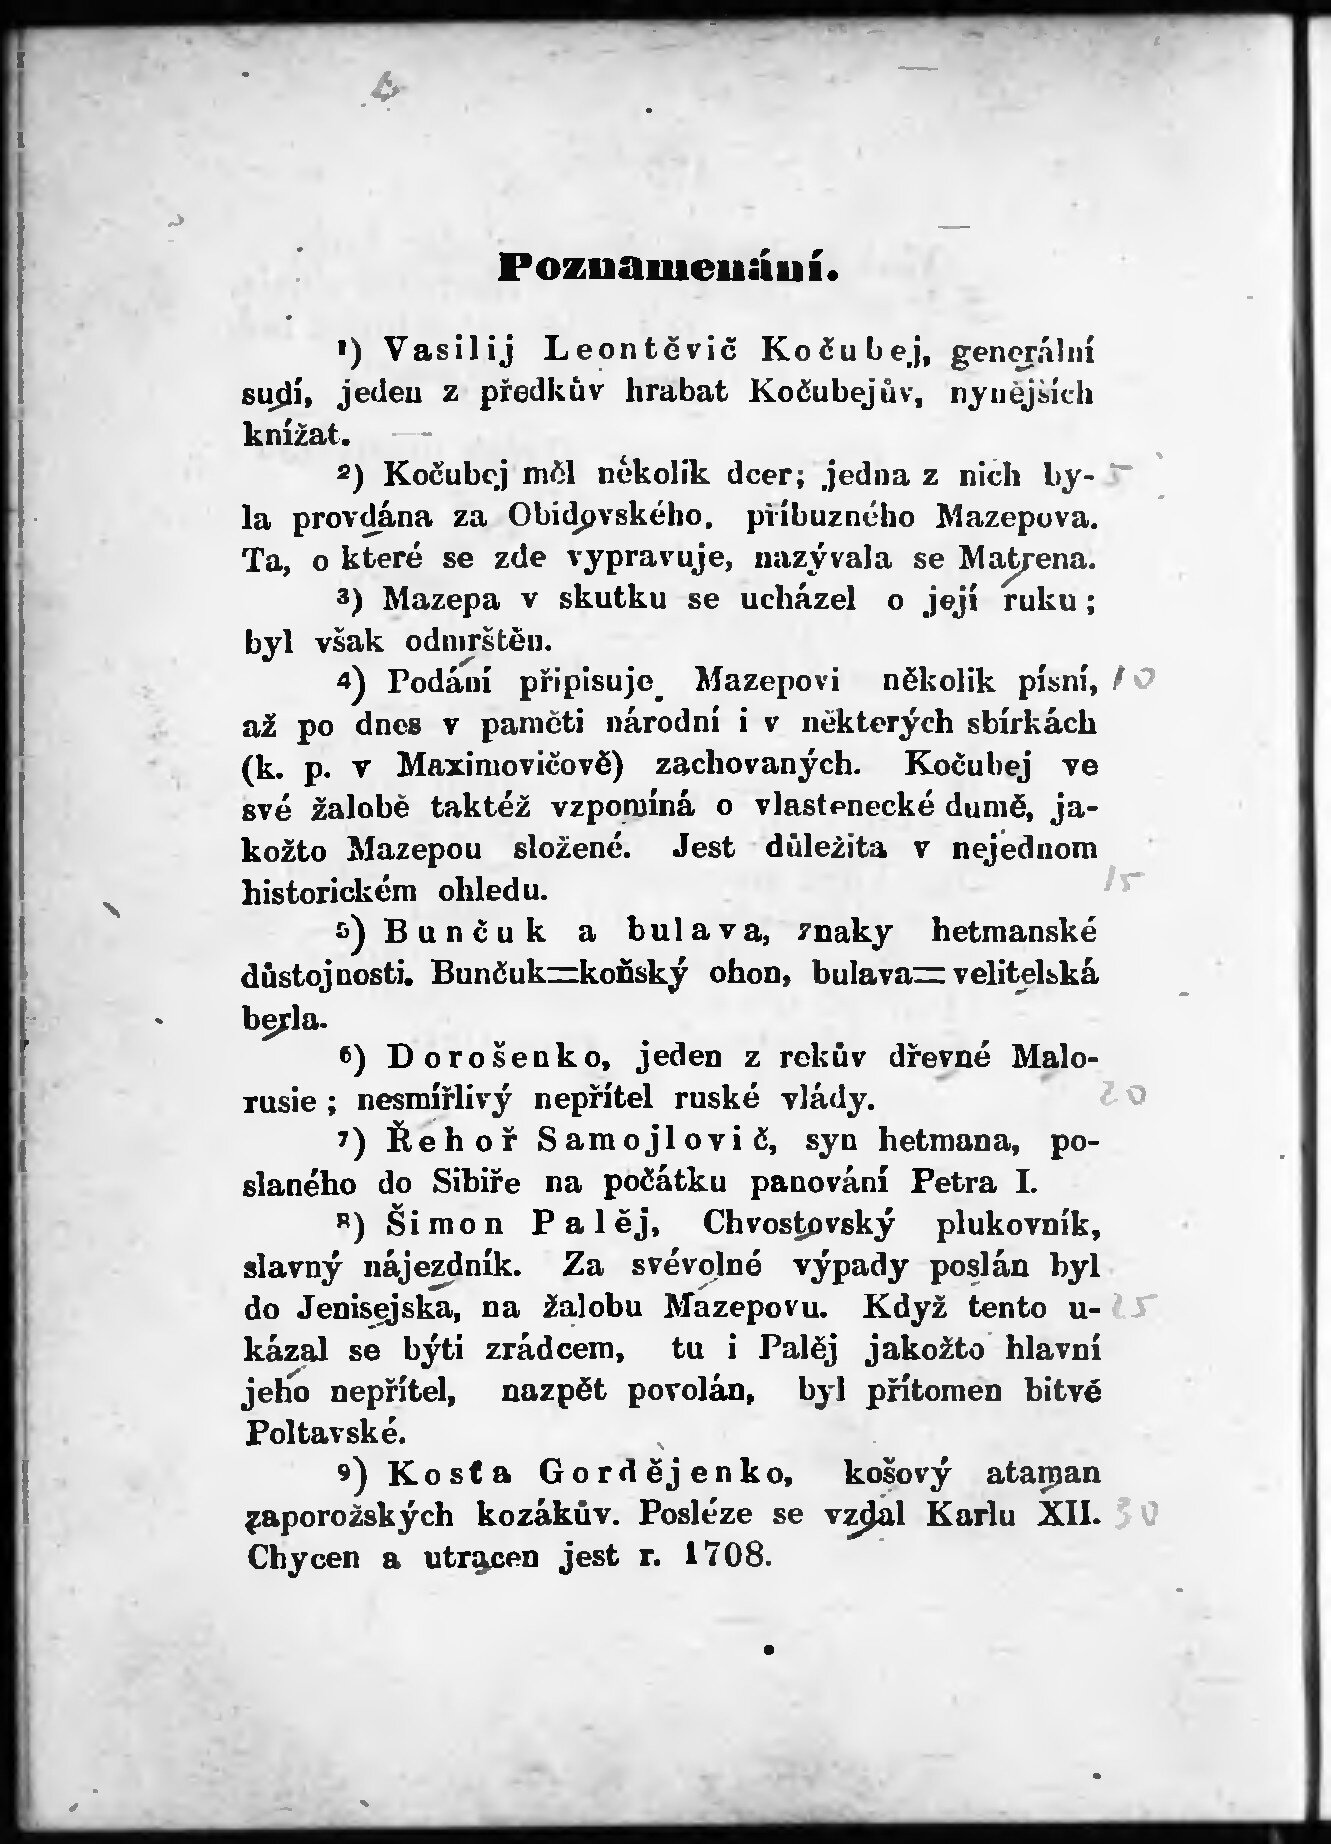 Poznamenání.
¹) Vasilij Leontěvič Kočubej, generální
sudí, jeden z předkův hrabat Kočubejův, nynějších
knížat.
²) Kočubej měl několik dcer; jedna z nich by- 5
la provdána za Obidovského, příbuzného Mazepova.
Ta, o které se zde vypravuje, nazývala se Matrena.
³) Mazepa v skutku se ucházel o její ruku;
byl však odmrštěn.
⁴) Podání připisuje Mazepovi několik písní, 10
až po dnes v paměti národní i v některých sbírkách
(k. p. v Maximovičově) zachovaných. Kočubej ve
své žalobě taktéž vzpomíná o vlastenecké dumě, ja-
kožto Mazepou složené. Jest důležita v nejednom
historickém ohledu. 15
⁵) Bunčuk a bulava, znaky hetmanské
důstojnosti. Bunčuk=koňský ohon, bulava=velitelská
berla.
⁶) Dorošenko, jeden z rekův dřevné Malo-
rusie; nesmířlivý nepřítel ruské vlády. 20
⁷) Řehoř Samojlovič, syn hetmana, po-
slaného do Sibiře na počátku panování Petra I.
⁸) Šimon Palěj, Chvostovský plukovník,
slavný nájezdník. Za svévolné výpady poslán byl
do Jenisejska, na žalobu Mazepovu. Když tento u- 25
kázal se býti zrádcem, tu i Palěj jakožto hlavní
jeho nepřítel, nazpět povolán, byl přítomen bitvě
Poltavské.
⁹) Kosta Gordějenko, košový ataman
zaporožských kozákův. Posléze se vzdal Karlu XII. 30
Chycen a utracen jest r. 1708.